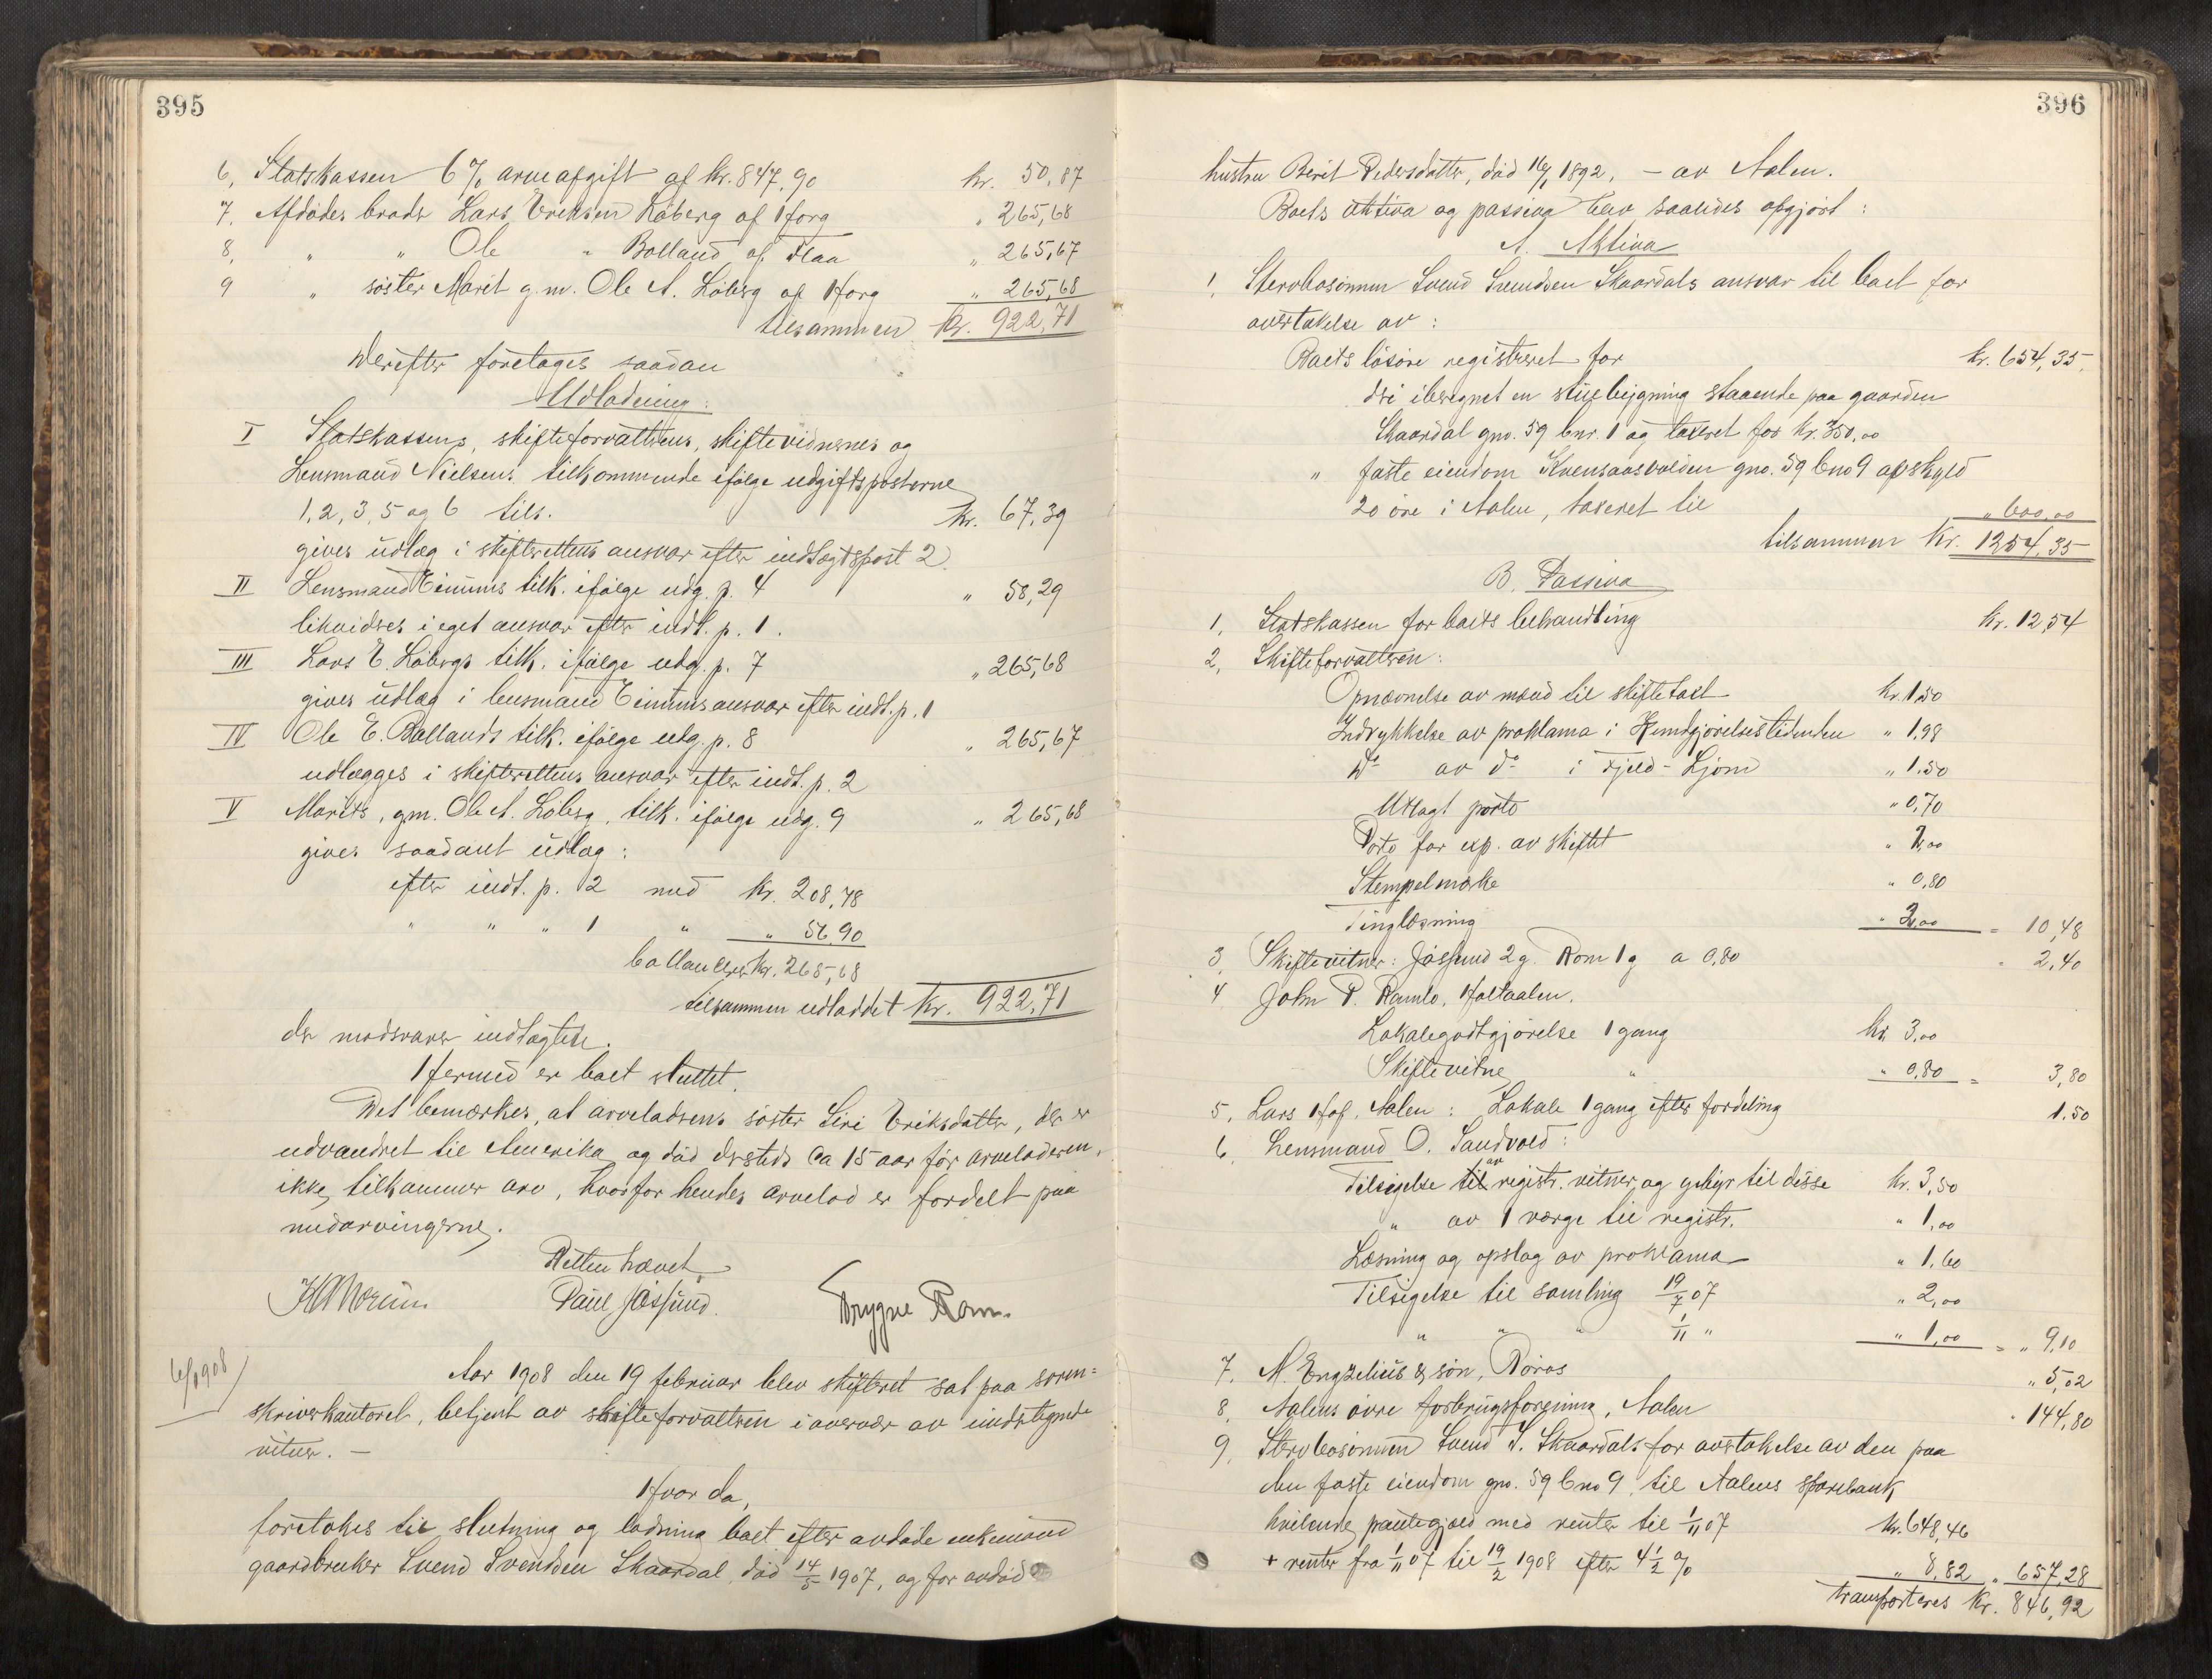 395
6, Statskassen 6 % arveafgift af kr. 847,90 kr. 50,87
7. Afdødes broder Lars Eriksen Løberg af Horg " 265,68
8, " " Ole " Bolland af Flaa " 265,67
9 " søster Marit g.m. Ole A. Løberg af Horg " 265,68
tilsammen kr. 922,71
Derefter foretages saadan
Udlodning:
I Statskassens, skifteforvalterens, skiftevidnernes og
Lensmand Nielsens tilkommende ifølge udgiftsposterne
1, 2, 3, 5 og 6 tils. kr. 67,39
gives udlæg i skifterettens ansvar efter indtægtspost 2.
II Lensmand Eimums tilk. ifølge udg. p. 4 " 58,29
likvideres i eget ansvar efter indt. p. 1.
III Lars E. Løbergs tilk. ifølge udg. p. 7 " 265,68
gives udlæg i lensmand Eimums ansvar efter indt. p. 1
IV Ole E. Bollands tilk. ifølge udg. p. 8 " 265,67
udlægges i skifterettens ansvar efter indt. p. 2
V Marits, gm. Ole A. Løberg, tilk. ifølge udg. 9 " 265,68
gives saadant udlæg:
efter indt. p. 2 med kr. 208,78
" " " 1 " " 56,90
ballancerer kr. 265,68
tilsammen udloddet kr. 922,71
der modsvarer indtægten.
Hermed er boet sluttet.
Det bemærkes, at arveladerens søster Siri Eriksdatter, der er
udvandret til Amerika og død dersteds ca 15 aar før arveladeren,
ikke tilkommer arv, hvorfor hendes arvelod er fordelt paa
medarvingerne.
Retten hævet.
Paul Jøssund. Trygve Rom.
6/1908
Aar 1908 den 19 februar blev skifteret sat paa soren=
skriverkontoret, betjent av skifteforvalteren i overvær av undertegnede
vitner. —
Hvor da,
foretokes til slutning og lodning boet efter avdøde enkemand
gaardbruker Svend Svendsen Skaardal, død 14/5 1907, og før avdøde
396
hustru Berit Pedersdatter, død 16/1 1892, — av Aalen.
Boets aktiva og passiva blev saaledes opgjort:
A. Aktiva
1, Stervbosønnen Svend Svendsen Skaardals ansvar til boet for
overtakelse av:
Boets løsøre registreret for kr. 654,35,
deri iberegnet en stuebygning staaende paa gaarden
Skaardal gno. 59 bnr. 1 og taxeret for kr. 350,00
" faste eiendom Kvensaasvolden gno. 59 bno 9 af skyld
20 øre i Aalen, taxeret til " 600,00
tilsammen kr. 1254,35
B. Passiva
1, Statskassen for boets behandling kr. 12,54
2, Skifteforvalteren:
Opnævnelse av mænd til skiftetaxt kr. 1,50
Indrykkelse av proklama i Kundgjørelsestidenden " 1,98
Do av do i Fjeld-Ljom " 1,50
Utlagt porto " 0,70
Porto for exp. av skiftet " 1,00
Stempelmærke " 0,80
Tinglæsning " 3,00 = 10,48
3, Skiftevitner: Jøssund 2 g. Rom 1 g a 0,80 " 2,40
4 John P. Ramlo, Holtaalen.
Lokalegodtgjørelse 1 gang kr. 3,00
Skiftevitne " " 0,80 = 3,80
5, Lars Hof, Aalen: Lokale 1 gang efter fordeling 1.50
6, Lensmand O. Sandvold:
Tilsigelse til av registr. vitner og gebyr til disse kr. 3,50
" av 1 værge til registr. " 1,00
Læsning og opslag av proklama " 1,60
Tilsigelse til samling 19/7 07 " 2,00
" " " 1/11 " " 1,00 = " 9,10
7, M. Engzelius & søn, Røros " 5,02
8, Aalens øvre forbrugsforening, Aalen " 144,80
9, Stervbosønnen Svend S. Skaardals for overtakelse av den paa
den faste eiendom gno. 59 bno 9 til Aalens sparebank
hvilende pantegjæld med renter til 1/11 07 kr. 648,46
+ renter fra 1/11 07 til 19/2 1908 efter 4 1/2 % " 8,82 " 657,28
transporteres kr. 846,92